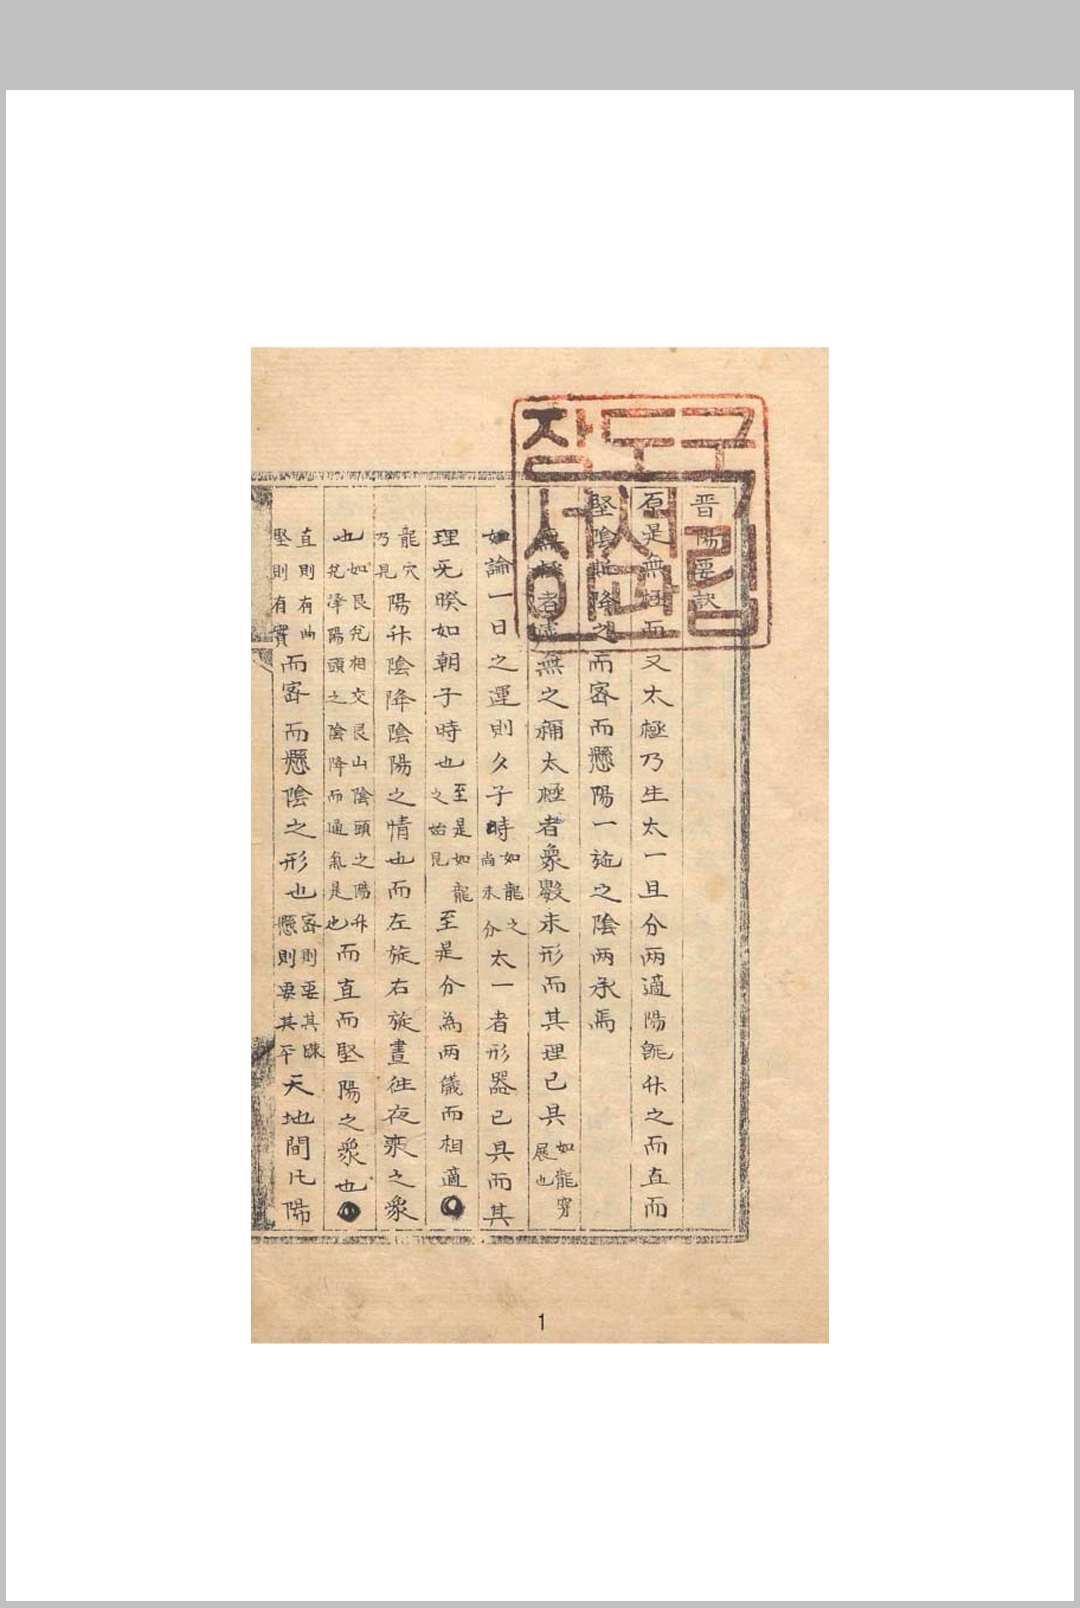 晋陽要訣
原是無極而又太極乃生太一且分兩適陽旣升之而直而
堅陰斯降之而密而懸陽一施之陰兩承焉
無極者虛無之稱太極者象數未形而其理已具如龍穷展也
如論一日之運則夂子時如龍之尚未分太一者形器已具而其
理旡暌如朝子時也至是如龍之始見至是分為兩儀而相適
龍穴乃見陽升陰降陰陽之情也而左旋右旋晝徃夜來之象
也如艮兊相交艮山陰頭之陽升兊澤陽頭之陰降而通氣是也而直而堅陽之象也
直則有曲堅則有實而密而懸陰之形也密則要其踈懸則要其平天地間凡陽
구도장
립서
파이
1